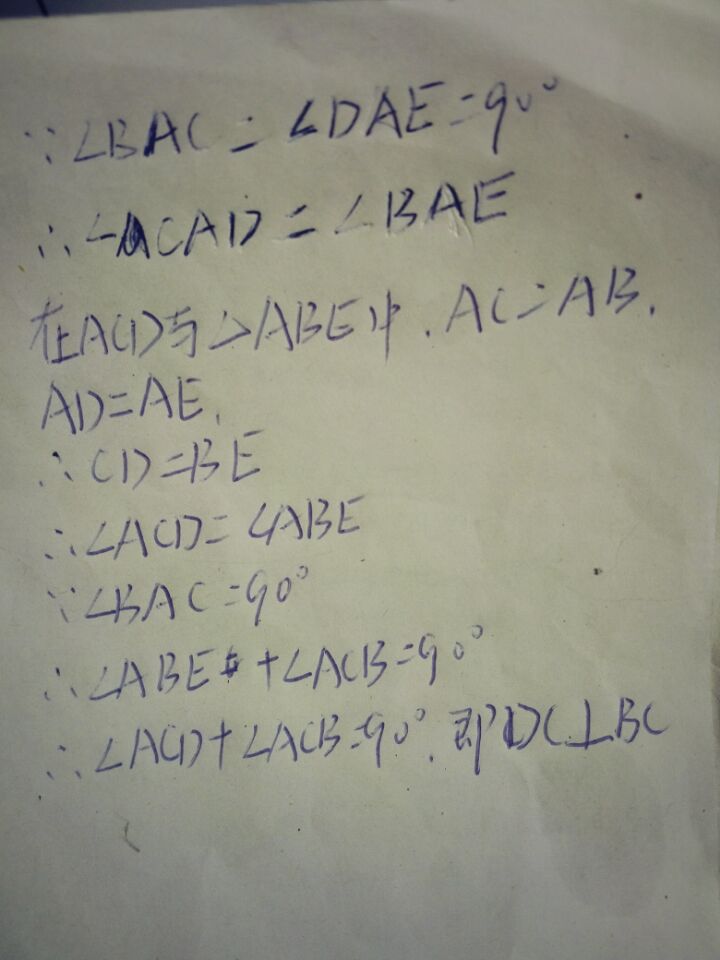 ∵∠BAC=∠DAE=90°
∴∠CAD=∠BAE
在ACD与△ABE中.AC=AB.
AD=AE.
∴CD=BE
∴∠ACD=∠ABE
∵∠BAC=90°
∴∠ABE+∠ACB=90°
∴∠ACD+∠ACB=90°.即DC⊥BC